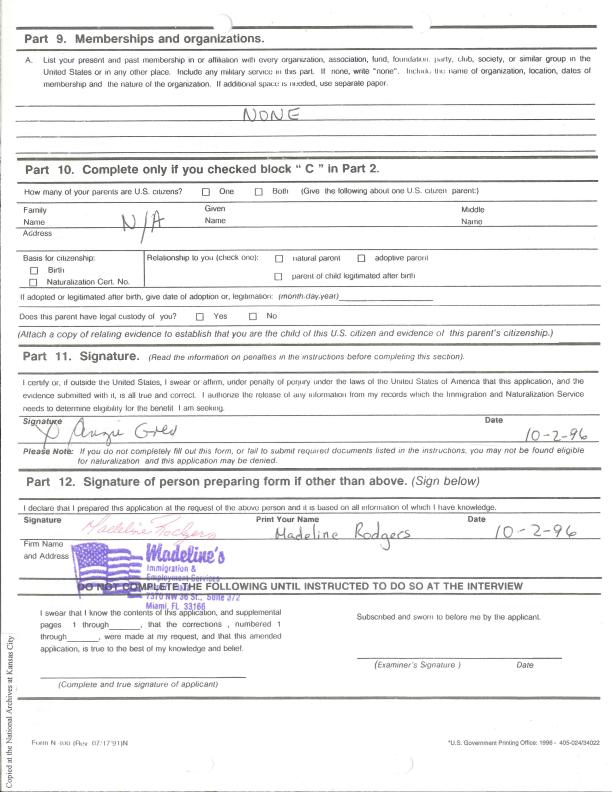 Part 9. Memberships and organizations.
A. List your present and past membership in or affiliation with every organization, association, fund, foundation, party, club, society, or similar group in the
United States or in any other place. Include any military service in this part. If none, write "none". Include the name of organization, location, dates of
membership and the nature of the organization. If additional space is needed, use separate paper.
NONE
Part 10. Complete only if you checked block " C " in Part 2.
How many of your parents are U.S. citizens? ☐ One ☐ Both (Give the following about one U.S. citizen parent:)
Family Given Middle
Name N/A Name Name
Address
Basis for citizenship: Relationship to you (check one): ☐ natural parent ☐ adoptive parent
☐ Birth
☐ Naturalization Cert. No. ☐ parent of child legitimated after birth
If adopted or legitimated after birth, give date of adoption or, legitimation: (month.day.year)
Does this parent have legal custody of you? ☐ Yes ☐ No
(Attach a copy of relating evidence to establish that you are the child of this U.S. citizen and evidence of this parent's citizenship.)
Part 11. Signature. (Read the information on penalties in the instructions before completing this section).
I certify or, if outside the United States, I swear or affirm, under penalty of perjury under the laws of the United States of America that this application, and the
evidence submitted with it, is all true and correct. I authorize the release of any information from my records which the Immigration and Naturalization Service
needs to determine eligibility for the benefit I am seeking.
Signature Date
X Angie 10-2-96
Please Note: If you do not completely fill out this form, or fail to submit required documents listed in the instructions, you may not be found eligible
for naturalization and this application may be denied.
Part 12. Signature of person preparing form if other than above. (Sign below)
I declare that I prepared this application at the request of the above person and it is based on all information of which I have knowledge.
Signature Madeline Rodgers Print Your Name Madeline Rodgers Date 10-2-96
Firm Name
and Address
Madeline's
Immigration &
Employment Services
DO NOT COMPLETE THE FOLLOWING UNTIL INSTRUCTED TO DO SO AT THE INTERVIEW
7370 NW 36 St., Suite 372
Miami, FL 33166
I swear that I know the contents of this application, and supplemental
pages 1 through , that the corrections , numbered 1
through , were made at my request, and that this amended
application, is true to the best of my knowledge and belief.
(Complete and true signature of applicant)
Subscribed and sworn to before me by the applicant.
(Examiner's Signature ) Date
Form N-400 (Rev. 07/17/91)N
*U.S. Government Printing Office: 1996 - 405-024/34022
Copied at the National Archives at Kansas City